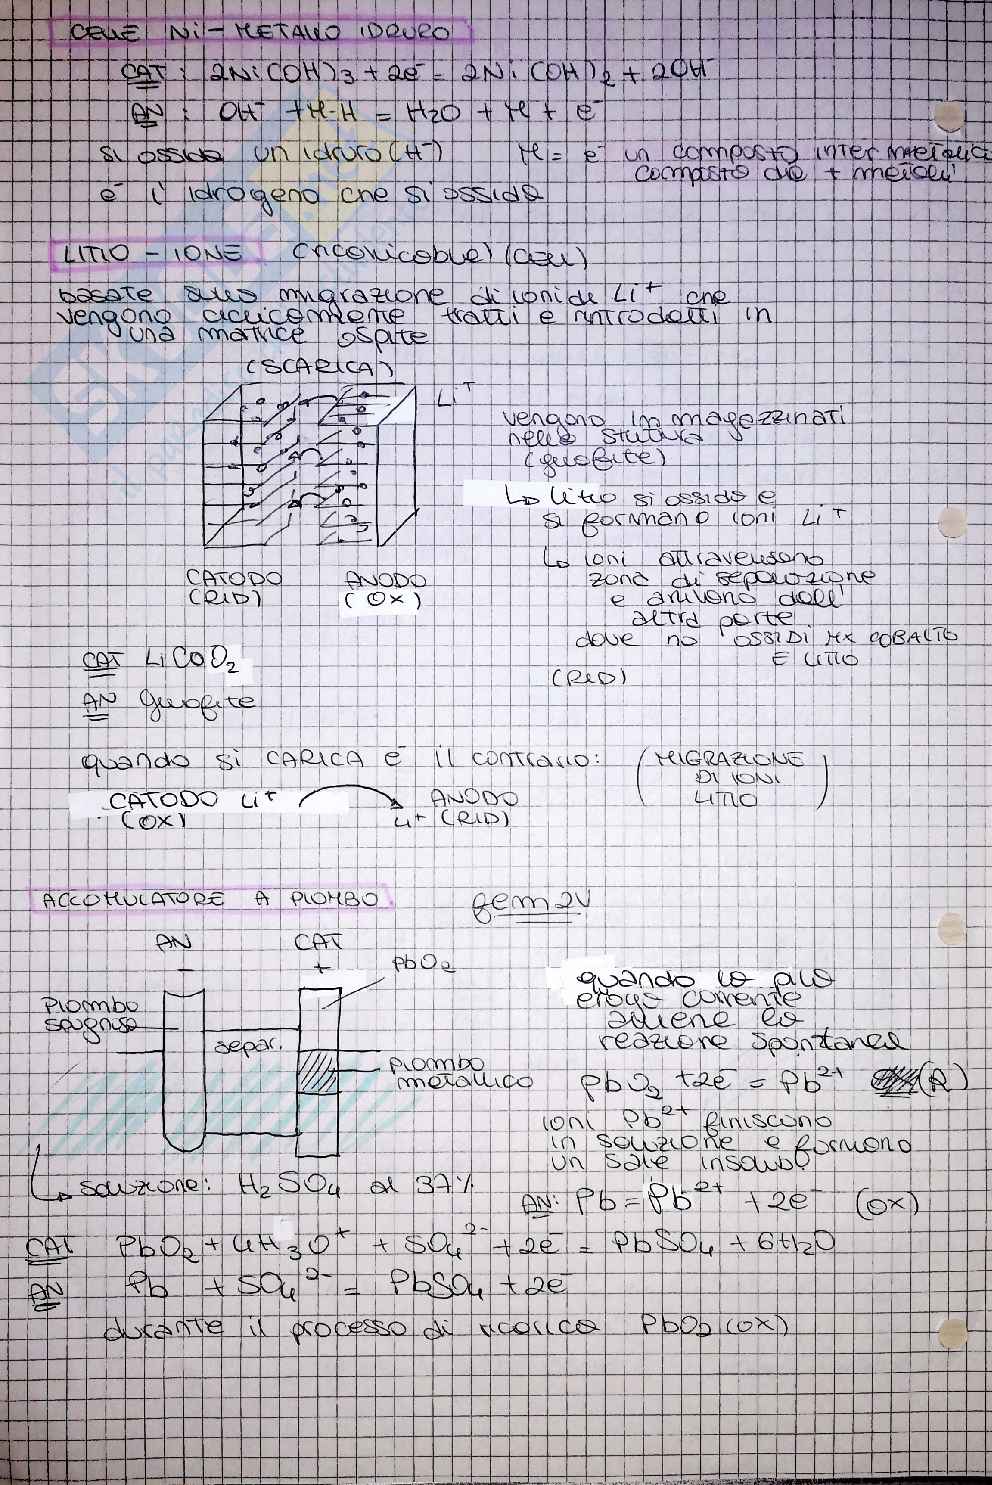 CELLE Ni-METALLO IDRURO
CAT: 2Ni(OH)3 + 2e⁻ = 2Ni(OH)2 + 2OH⁻
AN: OH⁻ + M-H = H2O + M + e⁻
si ossida un idruro (H⁻) M = è un composto intermetallico
composto da + metalli
è l'idrogeno che si ossida
LITIO-IONE (ricaricabili) (celle)
basate sulla migrazione di ioni di Li⁺ che
vengono ciclicamente tratti e introdotti in
una matrice ospite
(SCARICA)
Li⁺
vengono immagazzinati
nella
(grafite)
↳ litio si ossida e
si formano ioni Li⁺
↳ ioni attraversano
zona di separazione
e arrivano dall'
altra parte
dove ho OSSIDI MX COBALTO
E LITIO
(RID)
CATODO ANODO
(RID) (OX)
CAT LiCoO2
AN grafite
quando si CARICA è il contrario: (MIGRAZIONE
DI IONI
LITIO)
CATODO Li⁺ → ANODO
(OX) Li⁺ (RID)
ACCOMULATORE A PIOMBO fem 2V
AN CAT
- + PbO2
Piombo
spugnoso
separ.
Piombo
metallico
quando la pila
eroga corrente
avviene la
reazione spontanea
PbO2 + 2e⁻ = Pb²⁺ (R)
ioni Pb²⁺ finiscono
in soluzione e formano
un sale insolub
AN: Pb = Pb²⁺ + 2e⁻ (OX)
↳ soluzione: H2SO4 al 37%
CAT PbO2 + 4H3O⁺ + SO4²⁻ + 2e⁻ = PbSO4 + 6H2O
AN Pb + SO4²⁻ = PbSO4 + 2e⁻
durante il processo di ricarica PbO2 (OX)